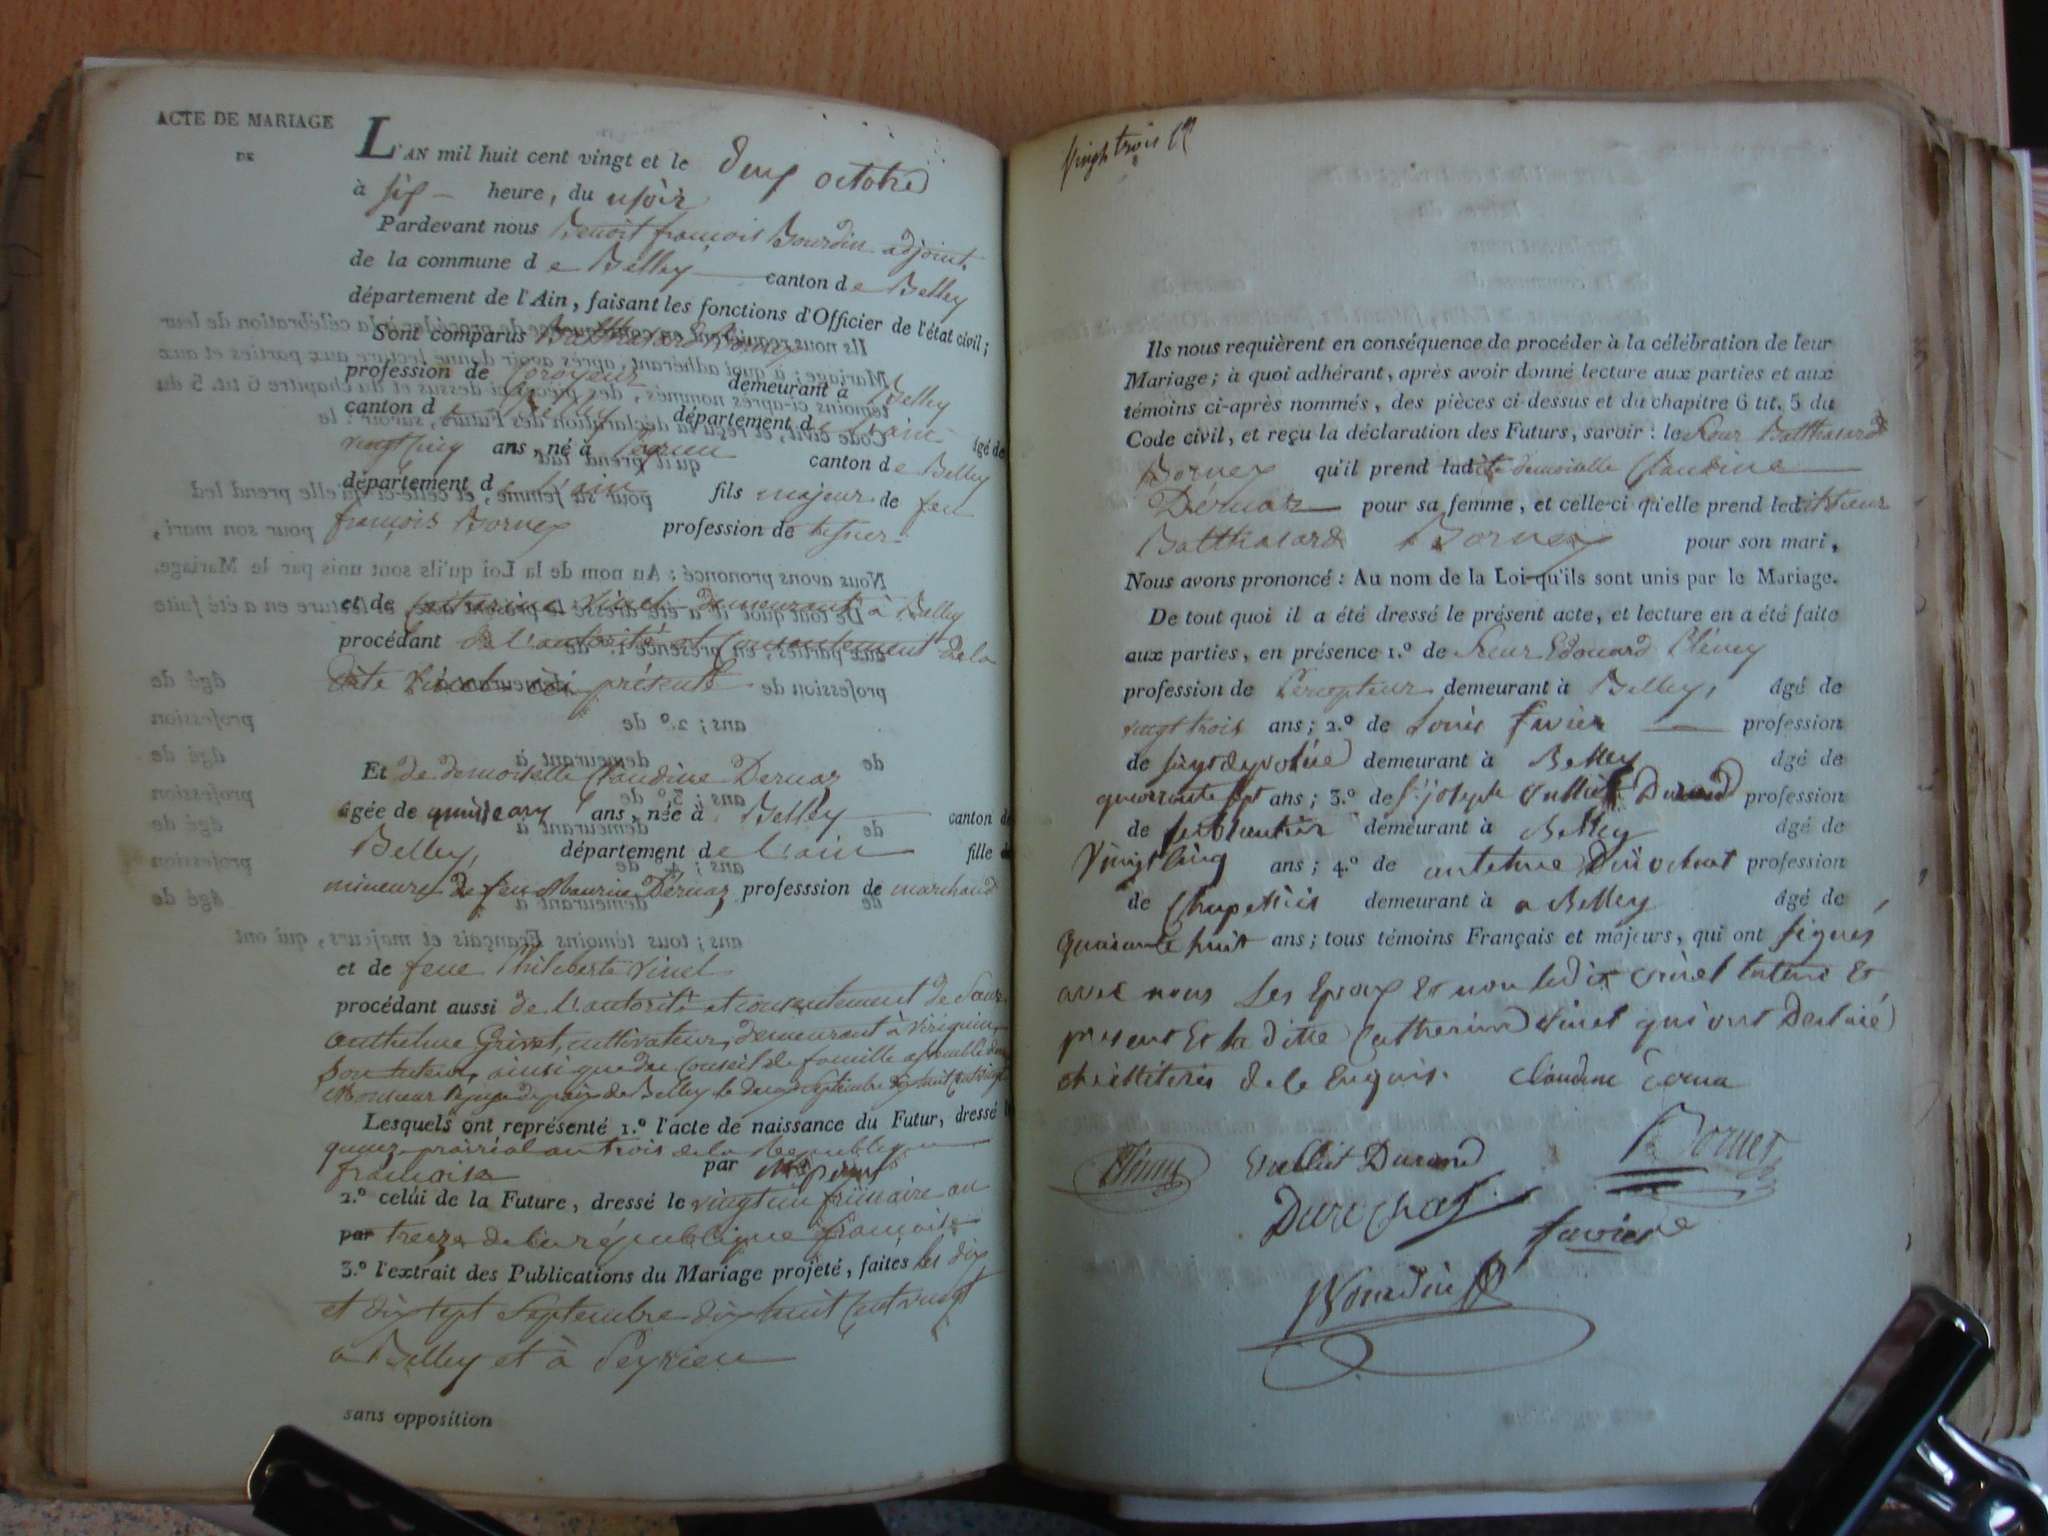 ACTE DE MARIAGE
DE
L'AN mil huit cent vingt et le deux octobre
à six heure, du soir
Pardevant nous Benoit françois Bourdin adjoint
de la commune de Belley canton de Belley
département de l'Ain, faisant les fonctions d'Officier de l'état civil;
Sont comparus Balthazard Bornex
profession de Coroyeur demeurant à Belley
canton de Belley département de l'ain âgé de
vingt cinq ans, né à Peyrieu canton de Belley
département de l'ain fils majeur de feu
françois Bornex profession de
et de Catherine Vinet demeurant à Belley
procédant de l'autorité et consentement de la
dite Vinet ici présente
Et de demoiselle Claudine Dernaz
agée de quinze ans, née à Belley canton de
Belley, département de l'ain fille
mineure de feu Maurice Dernaz, professsion de marchand
et de feue Philiberte Vinet
procédant aussi de l'autorité et consentement de Sieur
anthelme Grivet, cultivateur, demeurant à Virignin,
son tuteur, ainsi que du Conseil de famille assemblé
Monsieur le juge de paix de Belley le deux Septembre dix huit Cent vingt
Lesquels ont représenté 1.º l'acte de naissance du Futur, dressé le
quinze prairial an trois de la République
francaise par
2.º celui de la Future, dressé le vingt un frimaire an
par treize de la république francaise
3.º l'extrait des Publications du Mariage projeté, faites les dix
et dix sept Septembre dix huit Cent vingt
a Belley et à Peyrieu
sans opposition
Vingt trois
Ils nous requièrent en conséquence de procéder à la célébration de leur
Mariage; à quoi adhérant, après avoir donné lecture aux parties et aux
témoins ci-après nommés, des pièces ci-dessus et du chapitre 6 tit. 5 du
Code civil, et reçu la déclaration des Futurs, savoir: le Sieur Balthazard
Bornex qu'il prend ladite demoiselle Claudine
Dérnaz pour sa femme, et celle-ci qu'elle prend ledit Sieur
Balthazard Bornex pour son mari,
Nous avons prononcé: Au nom de la Loi qu'ils sont unis par le Mariage.
De tout quoi il a été dressé le présent acte, et lecture en a été faite
aux parties, en présence 1.º de Sieur Edouard Clémy
profession de Percepteur demeurant à Belley, âgé de
vingt trois ans; 2.º de Louis favier profession
de demeurant à Belley âgé de
quarante sept ans; 3.º de Sr joseph Vulliot Durand profession
de ferblantier demeurant à Belley âgé de
Vingt Cinq ans; 4.º de antelme Durochat profession
de Chapelier demeurant à a Belley âgé de
Quarante huit ans; tous témoins Français et majeurs, qui ont signés
avec nous Les Epoux Et non ledit Vinet tuteur Et
present Et la ditte Catherine Vinet qui ont Declaré
etre illiteres de ce Enquis. Claudine Derna
Clémy Vulliot Durand Bornex
Durochat favier
Bourdin